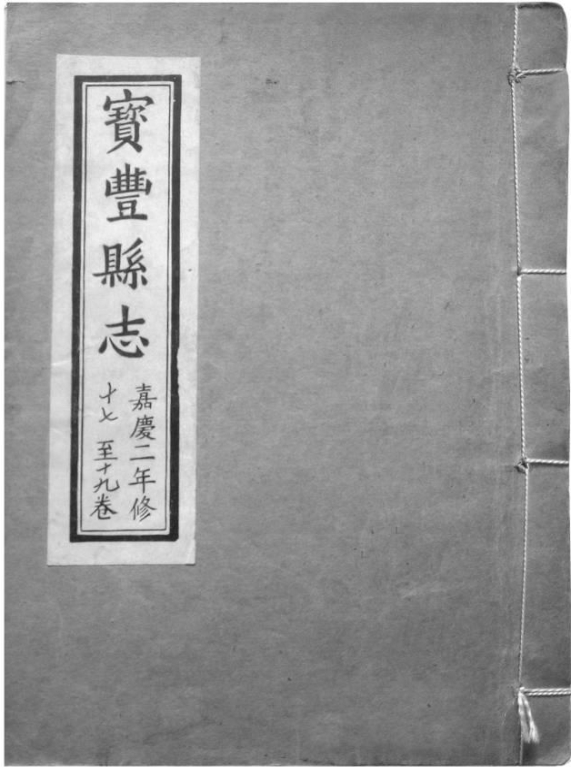 寶豐縣志
嘉慶二年修
十七至十九卷